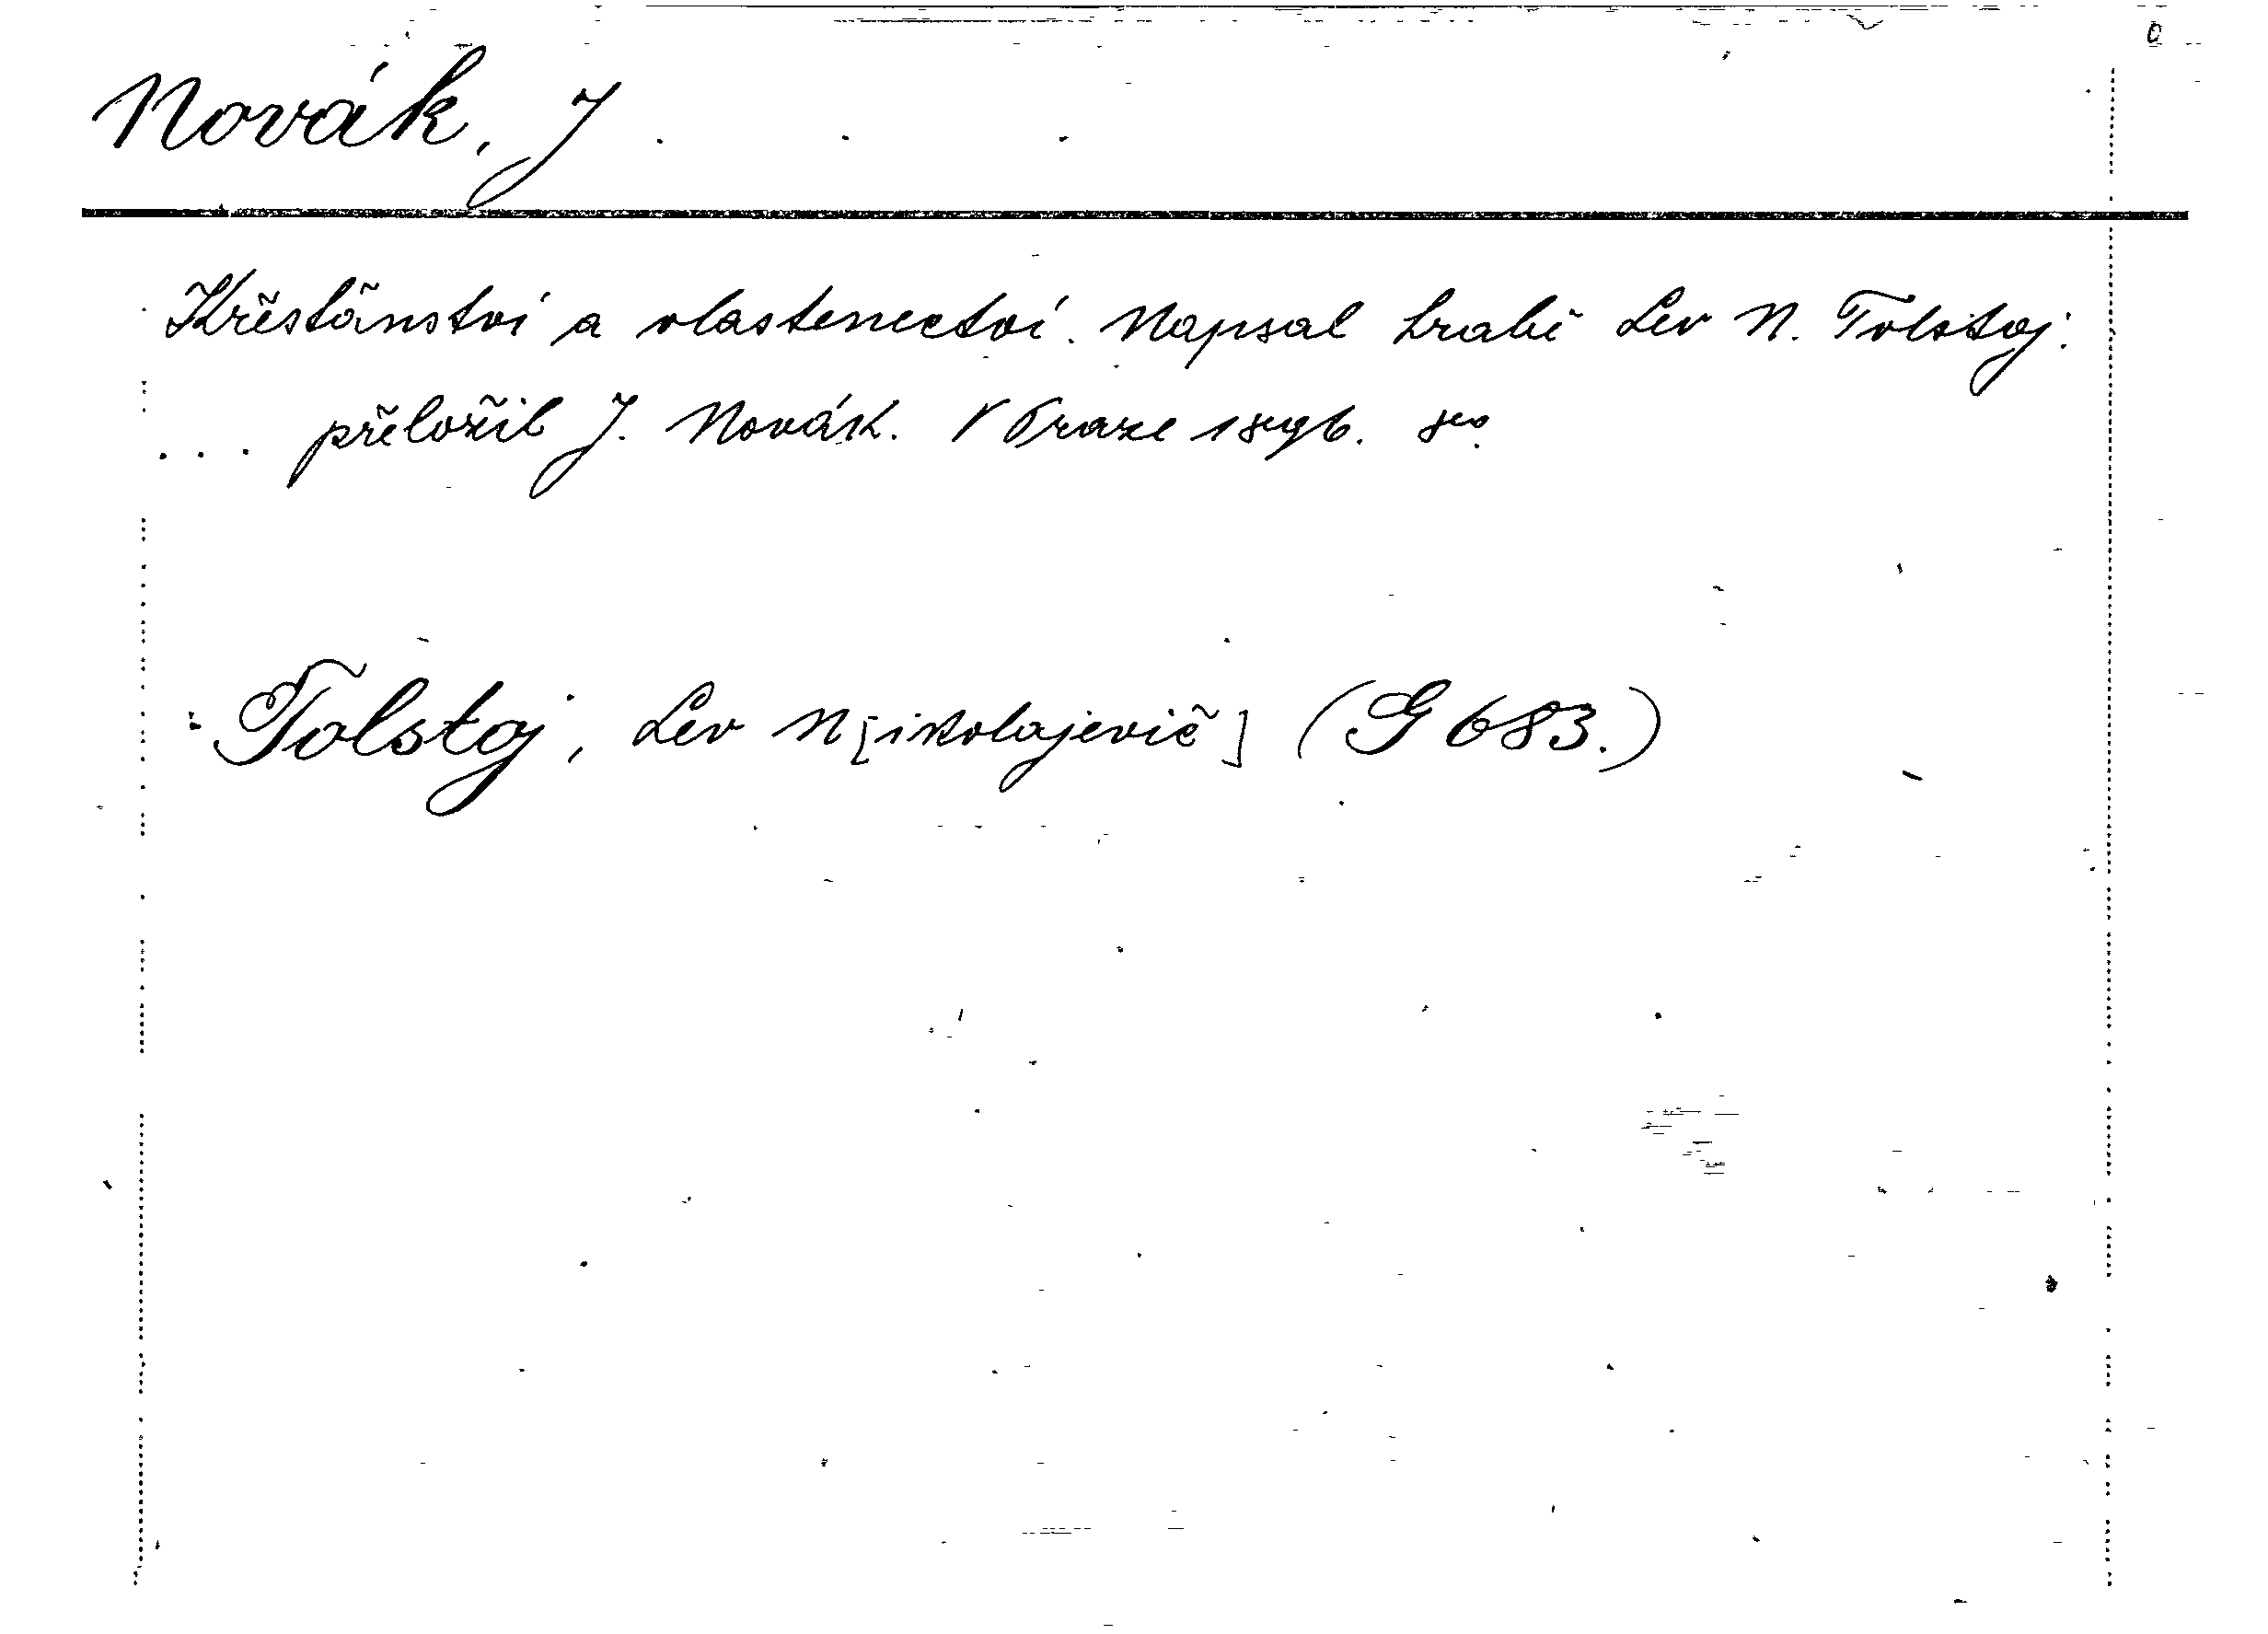 Novák, J.
Křesťanství a vlastenectví. Napsal hrabě Lev N. Tolstoj.
... přeložil J. Novák. V Praze 1896. 8º.
Tolstoj, Lev N[ikolajevič] (G 683.)